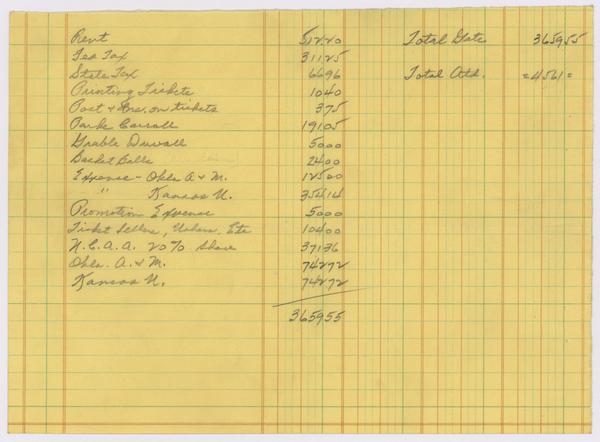 Rent 51220 Total Gate 365955
Fed Tax 31125
State Tax 6696 Total Atd. =4561=
Printing Tickets 1040
Post & Ins. on tickets 375
Parke Carroll 19105
Gruble Duvall 5000
Basket Balls 2400
Expense - Okla A & M. 12500
" Kansas U. 35414
Promotion Expense 5000
Ticket Sellers, Ushers, Etc 10400
N.C.A.A. 20% Share 37136
Okla. A. & M. 74272
Kansas U. 74272
365955